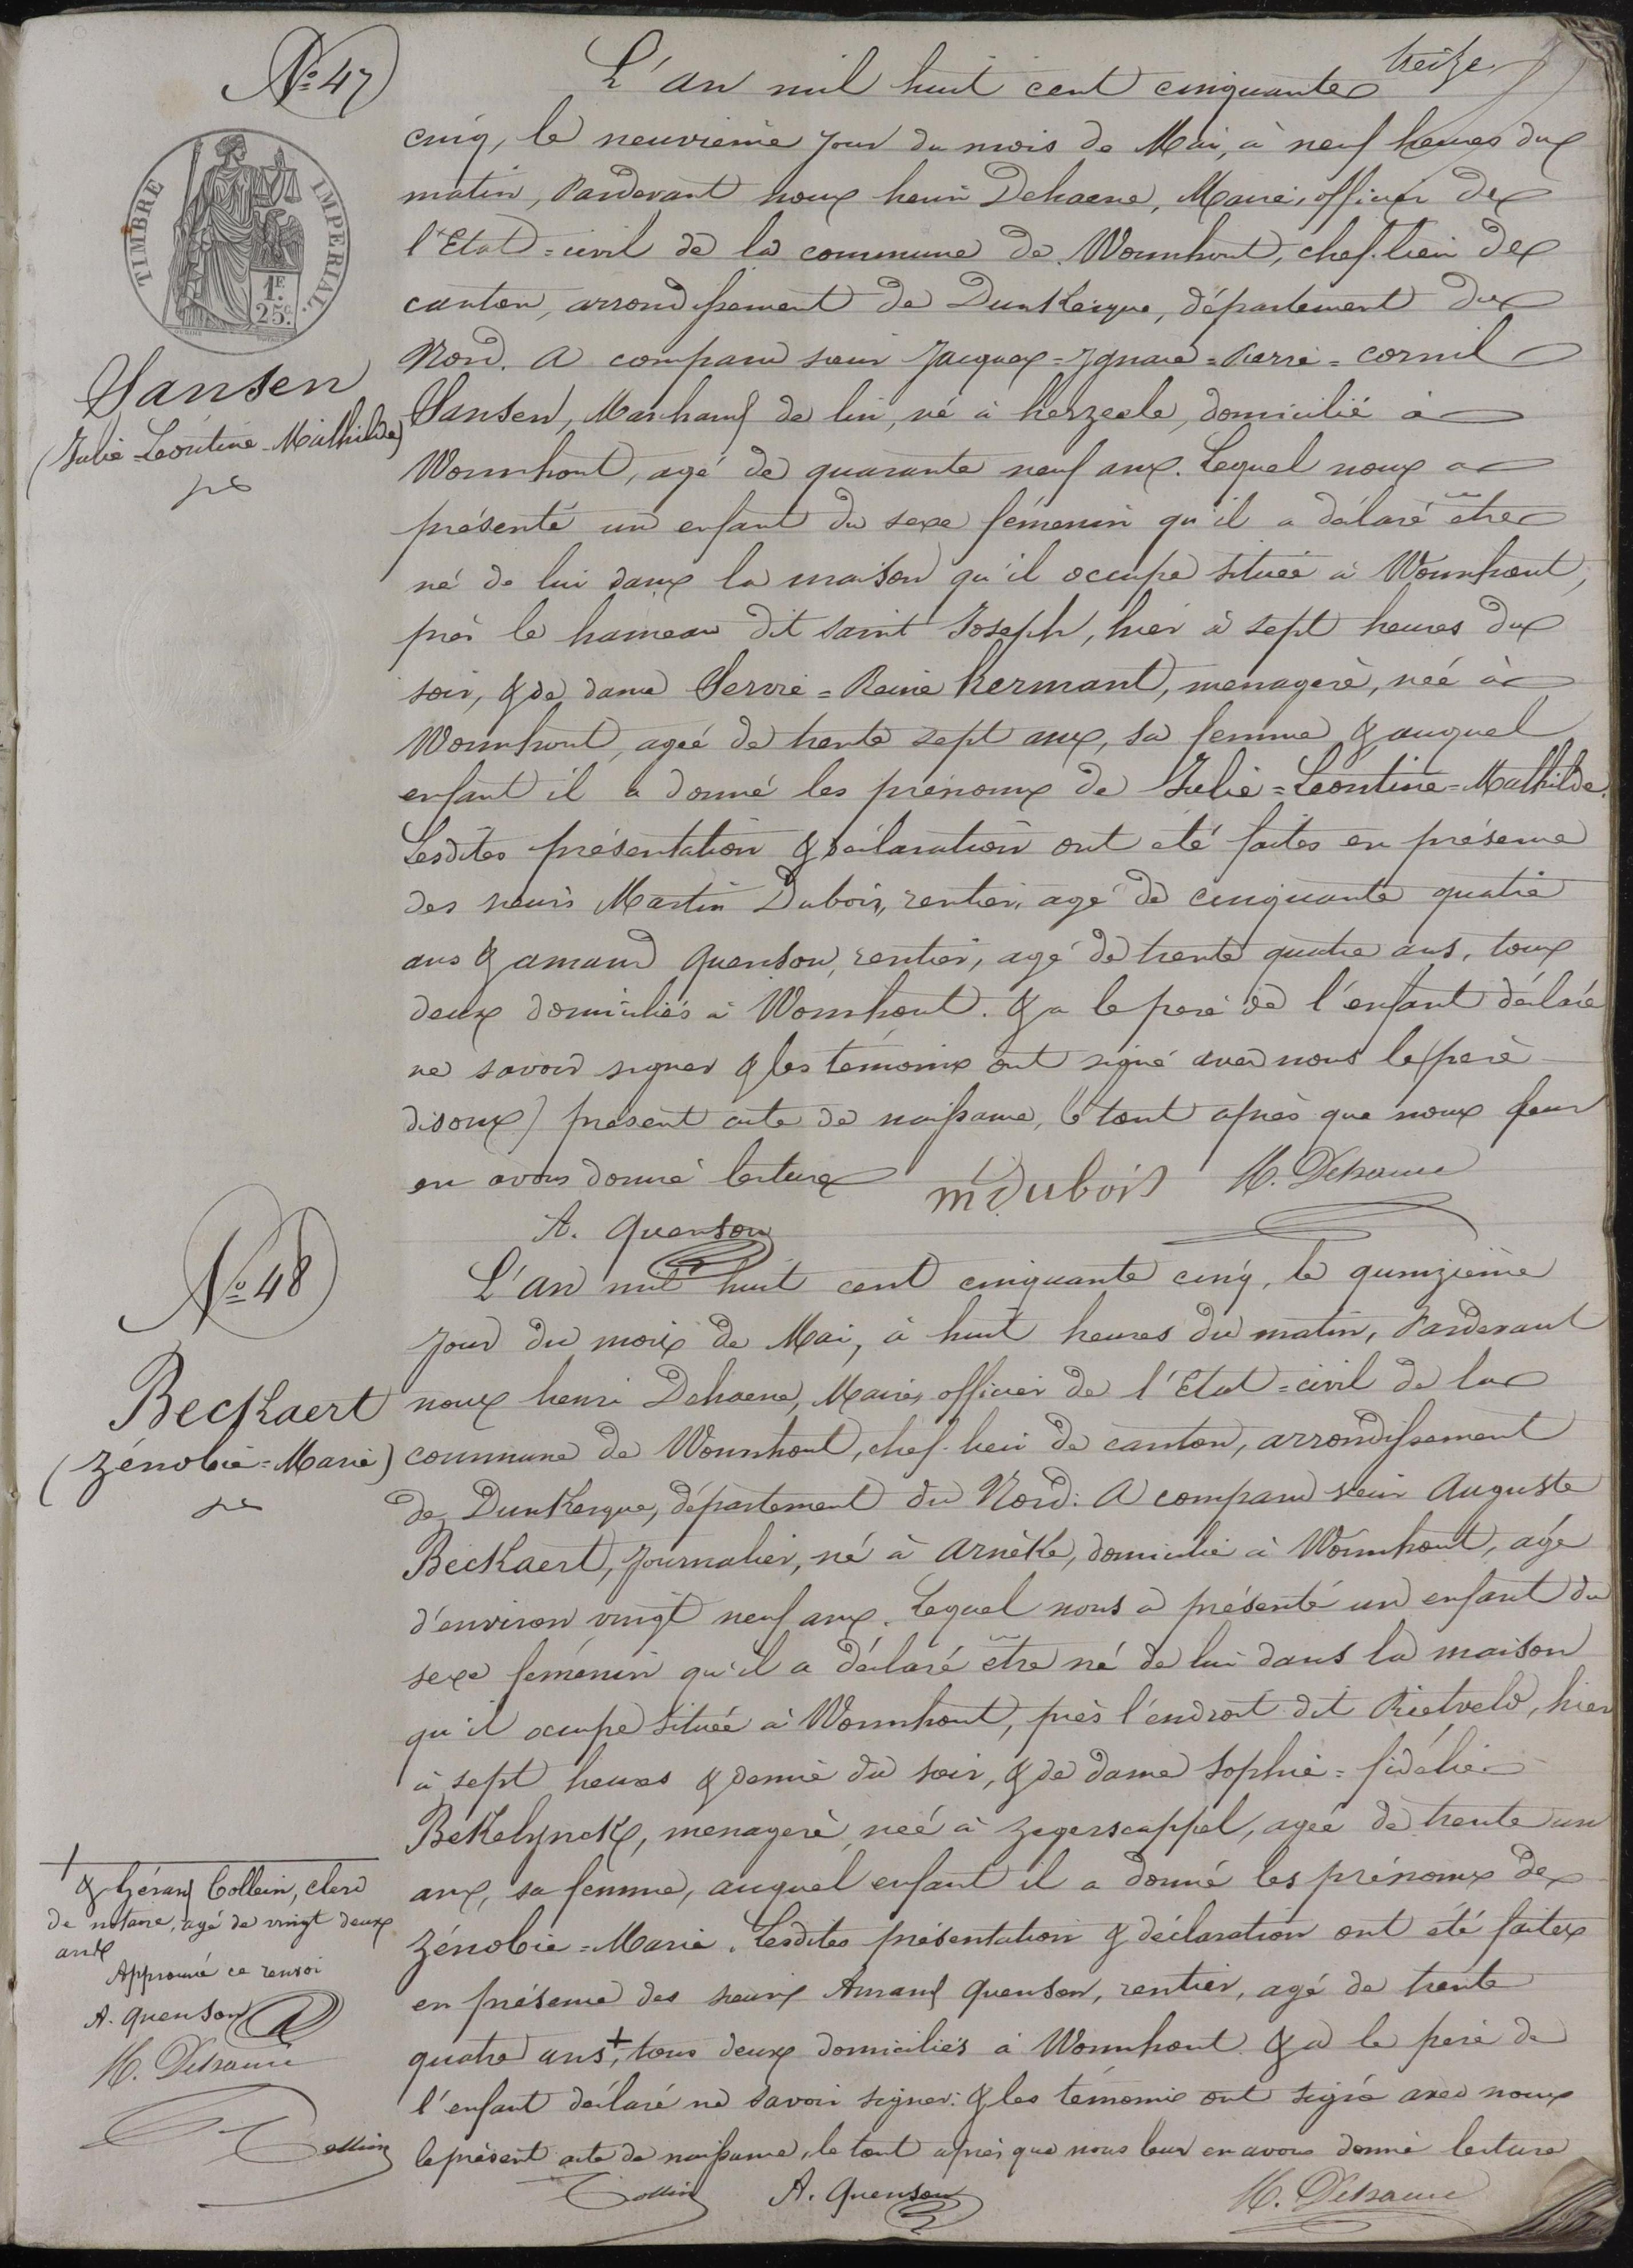 treize
No. 47
L'an mil huit cent cinquante
cinq, le neuvième jour du mois de Mai, à neuf heures du
matin, Pardevant nous henri Dehaene, Maire, officier de
l'Etat=civil de la commune de Wormhout, chef-lieu de
canton, arrondissement de Dunkerque, département du
Nord. A comparu sieur Jacques=Ignace=Pierre=cornil
Sansen, Marchand de lin, né à herzeele, domicilié à
Wormhout, agé de quarante neuf ans. Lequel nous a
présenté un enfant du sexe fémenin qu'il a déclaré être
né de lui dans la maison qu'il occupe située à Wormhout,
près le hameau dit saint Joseph, hier à sept heures du
soir, & de dame Servie=Reine hermant, menagerè, née à
Wormhout, agée de trente sept ans, sa femme & auquel
enfant il a donné les prénoms de Julie=Léontine=Mathilde.
Lesdites présentation & déclaration ont été faites en présence
des sieurs Martin Dubois, rentier, agé de cinquante quatre
ans & amand Quenson, rentier, agé de trente quatre ans, tous
deux domiciliés à Wormhout. & a le père de l'enfant déclaré
ne savoir signer & les témoins ont signé avec nous le (père
disons) présent acte de naissance, le tout après que nous leur
en avons donné lecture
m. dubois H. Dehaene
A. Quenson
TIMBRE IMPERIAL.
1F.
25c.
Sansen
(Julie=Léontine=Mathilde)
No. 48
L'an mil huit cent cinquante cinq, le quinzième
jour du mois de Mai, à huit heures du matin, Pardevant
nous henri Dehaene, Maire, officier de l'Etat=civil de la
commune de Wormhout, chef-lieu de canton, arrondissement
de Dunkerque, département du Nord. A comparu sieur Auguste
Beckaert, journalier, né à Arnèke, domicilié à Wormhout, agé
d'environ vingt neuf ans. Lequel nous a présenté un enfant du
sexe fémenin qu'il a déclaré être né de lui dans la maison
qu'il occupe située à Wormhout, près l'endroit dit Rietveld, hier
à sept heures & demie du soir, & de dame Sophie=fidélie
Bekelynck, menagerè, née à Zegerscappel, agée de trente un
ans, sa femme, auquel enfant il a donné les prénoms de
Zénobie=Marie. Lesdites présentation & déclaration ont été faites
en présence des sieurs Amand Quenson, rentier, agé de trente
quatre ans +, tous deux domiciliés à Wormhout & a le père de
l'enfant déclaré ne savoir signer: & les témoins ont signé avec nous
le présent acte de naissance, le tout après que nous leur en avons donné lecture
Collein A. Quenson H. Dehaene
Beckaert
(Zénobie=Marie)
+
& Gérard Collein, clerc
de notaire, agé de vingt deux
ans
Approuvé ce renvoi
A. Quenson
H. Dehaene
Collein